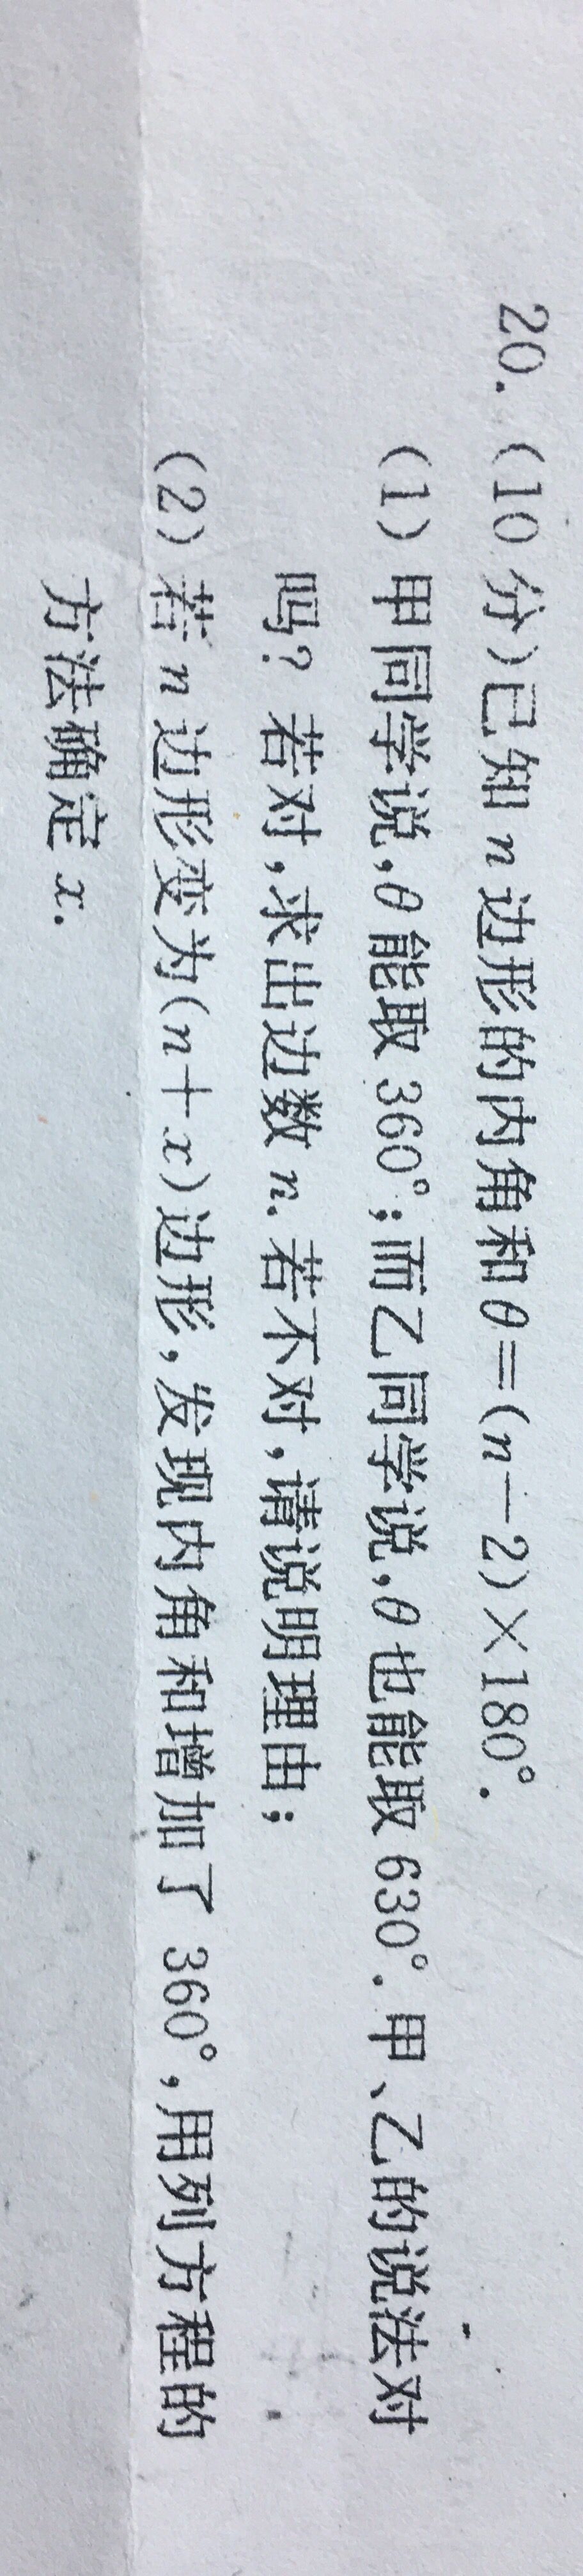 20. (10 分)已知 n 边形的内角和 θ=(n-2)×180°.
(1) 甲同学说,θ 能取 360°;而乙同学说,θ 也能取 630°. 甲、乙的说法对
吗? 若对,求出边数 n. 若不对,请说明理由;
(2) 若 n 边形变为(n+x)边形,发现内角和增加了 360°,用列方程的
方法确定 x.